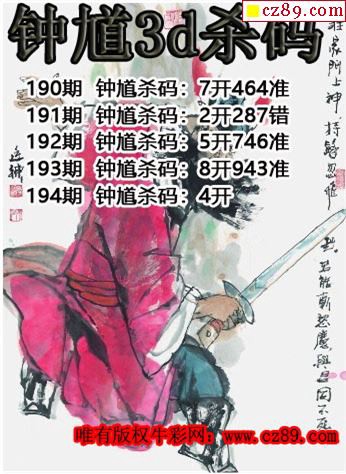 cz89.com
钟馗3d杀码
190期 钟馗杀码：7开464准
191期 钟馗杀码：2开287错
192期 钟馗杀码：5开746准
193期 钟馗杀码：8开943准
194期 钟馗杀码：4开
唯有版权牛彩网：www.cz89.com